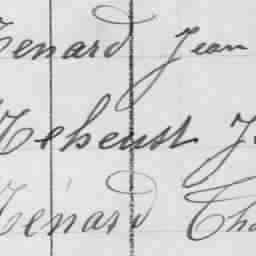 enard Jean
Meheust J
Ménard Cha